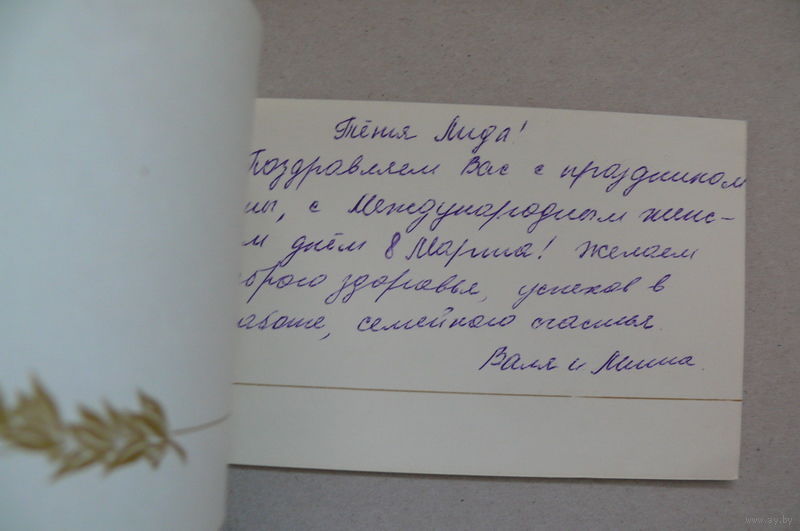 Тётя Лида!
Поздравляем Вас с праздником
ны, с Международным женс-
м днём 8 Марта! Желаем
оброго здоровья, успехов в
аботе, семейного счастья.
Валя и Миша.
www.ay.by